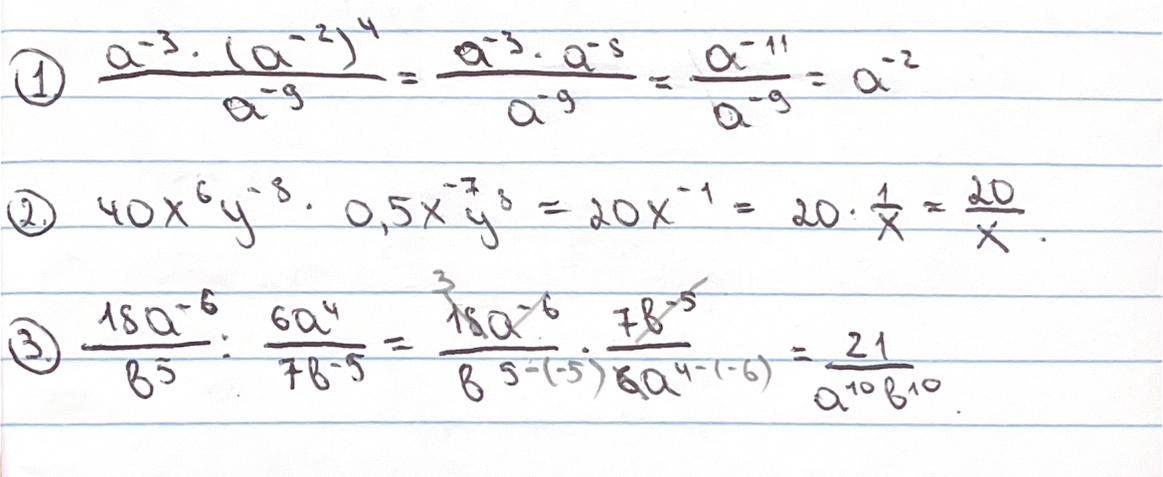 ① a⁻³ · (a⁻²)⁴ / a⁻⁹ = a⁻³ · a⁻⁸ / a⁻⁹ = a⁻¹¹ / a⁻⁹ = a⁻²
②. 40x⁶y⁻⁸ · 0,5x⁻⁷y⁸ = 20x⁻¹ = 20 · 1/x = 20/x.
③. 18a⁻⁶ / b⁵ : 6a⁴ / 7b⁻⁵ = 3 18a⁻⁶ / b⁵⁻⁽⁻⁵⁾ · 7b⁻⁵ / 6a⁴⁻⁽⁻⁶⁾ = 21 / a¹⁰b¹⁰.